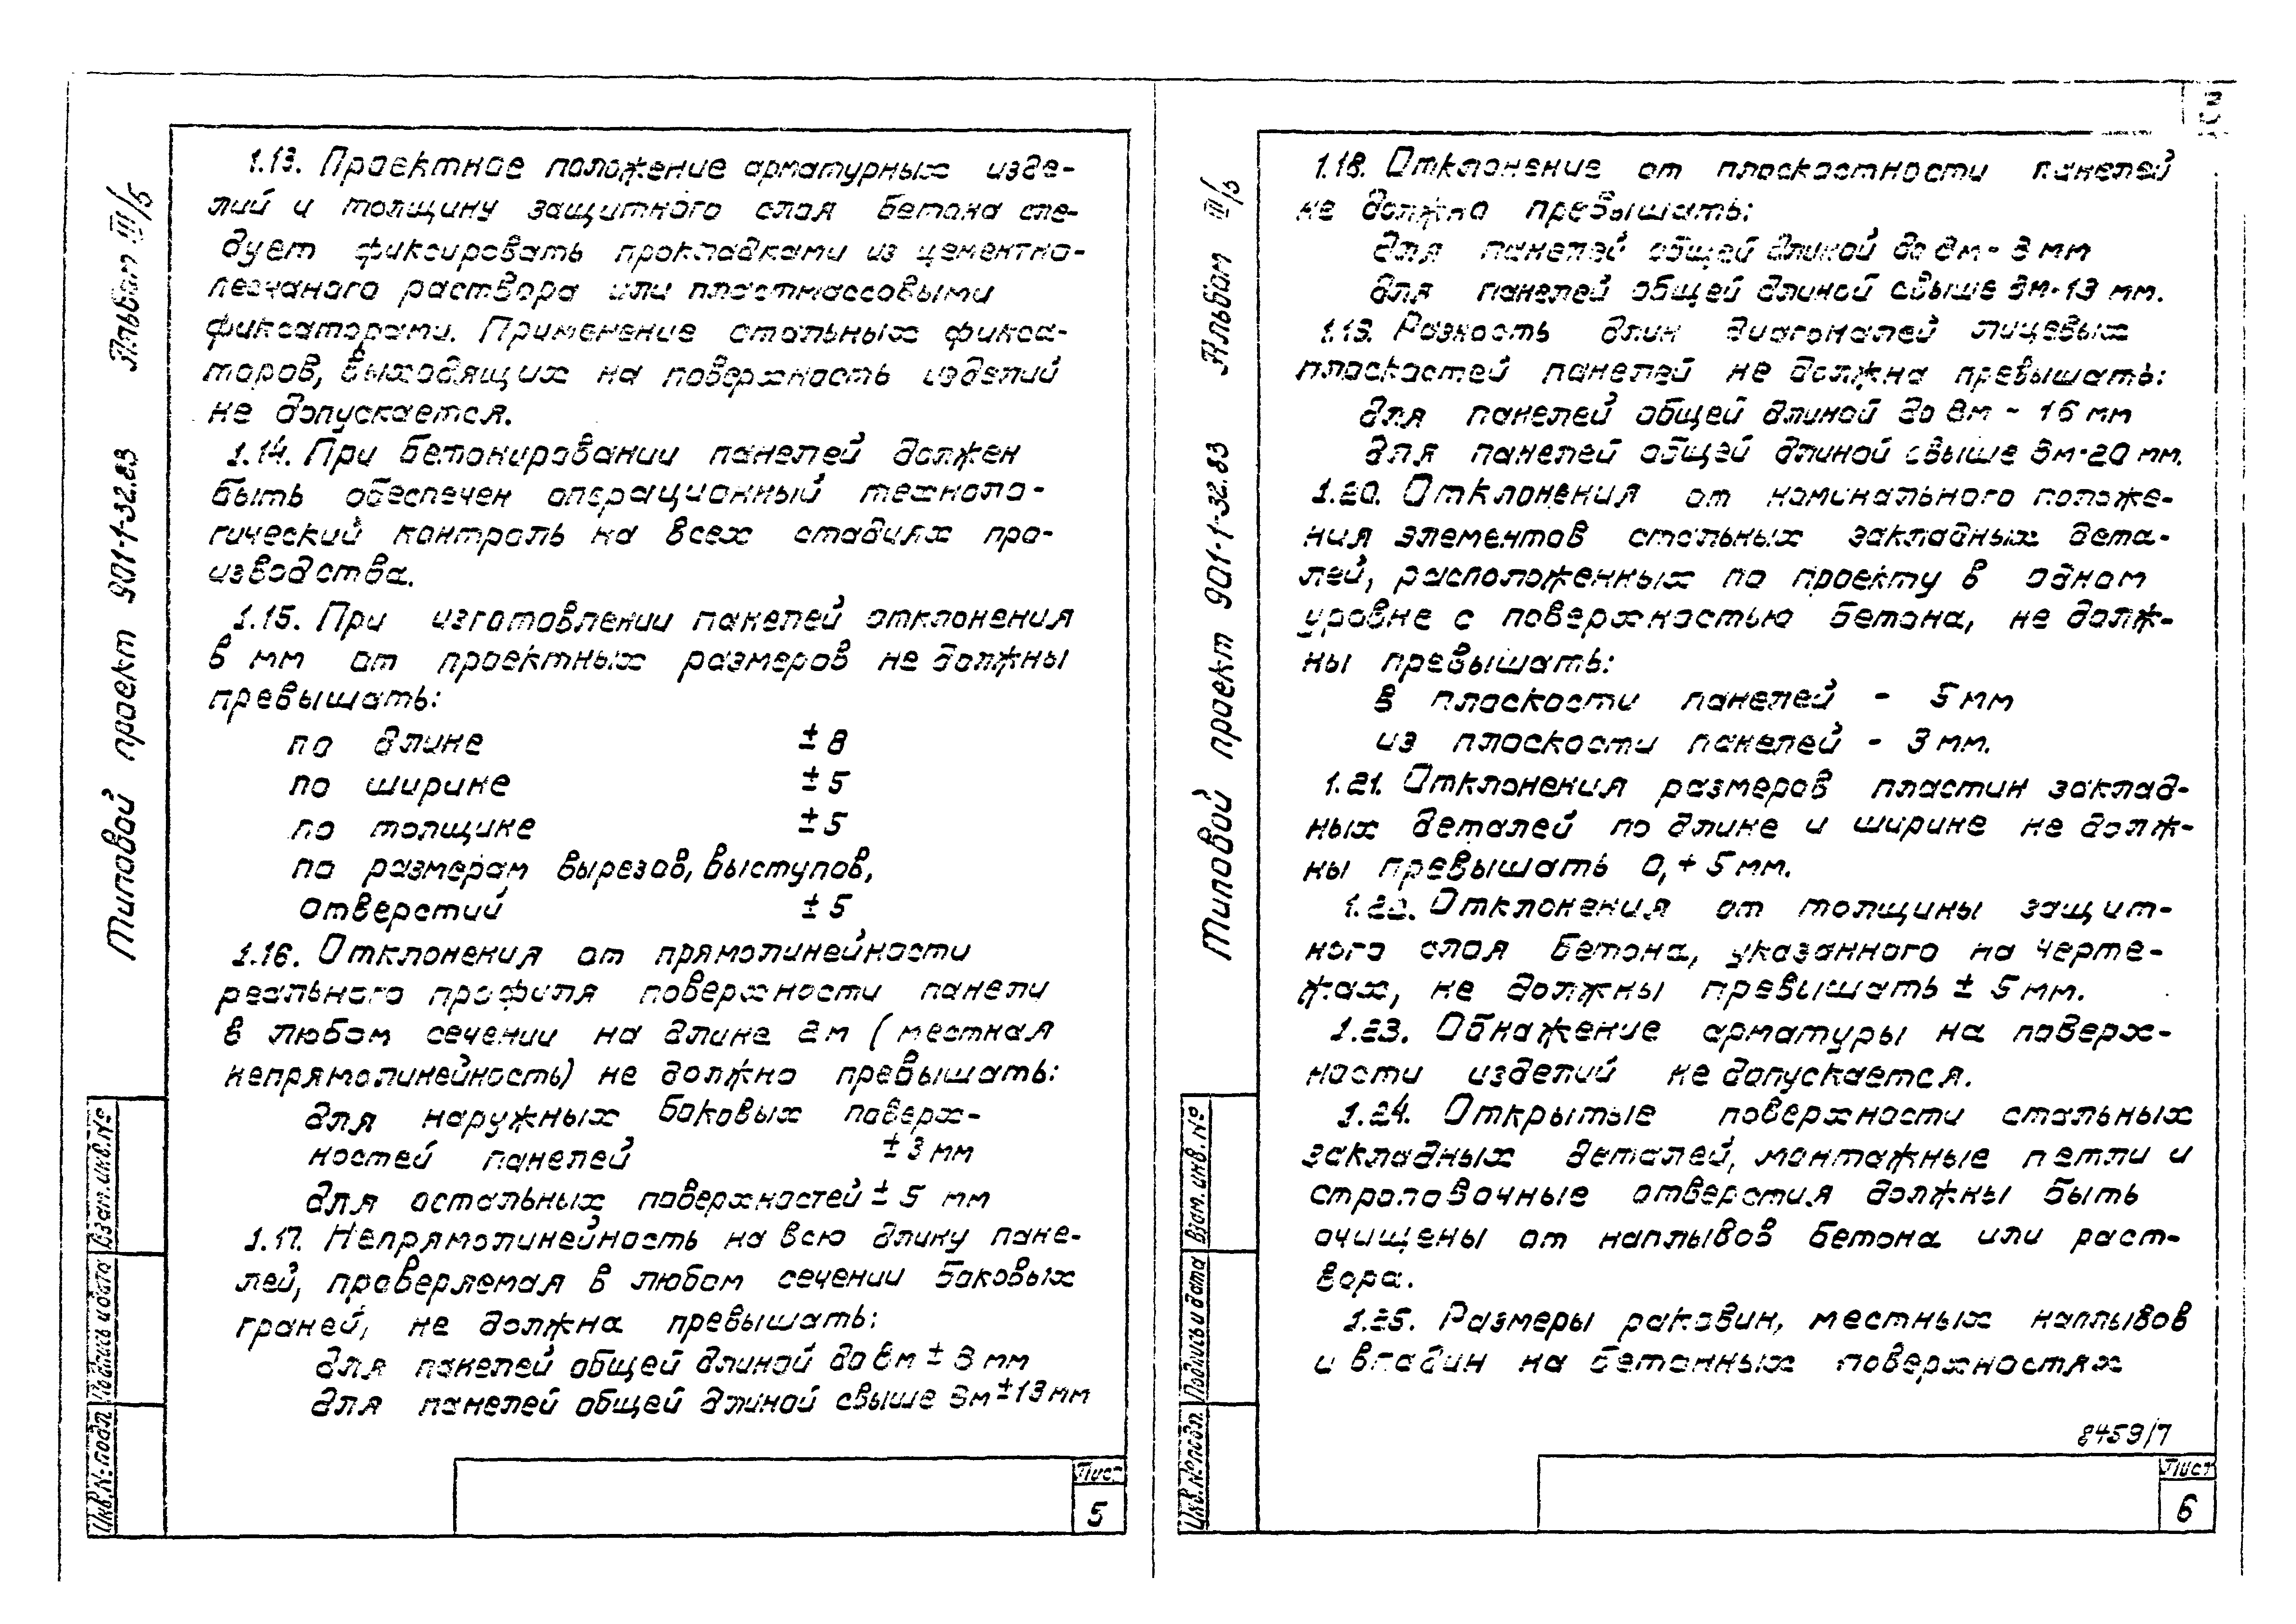 3
1.13. Проектное положение арматурных изде-
лий и толщину защитного слоя бетона сле-
дует фиксировать прокладками из цементно-
песчаного раствора или пластмассовыми
фиксаторами. Применение стальных фикса-
торов, выходящих на поверхность изделий
не допускается.
1.14. При бетонировании панелей должен
быть обеспечен операционный техноло-
гический контроль на всех стадиях про-
изводства.
1.15. При изготовлении панелей отклонения
в мм от проектных размеров не должны
превышать:
по длине ± 8
по ширине ± 5
по толщине ± 5
по размерам вырезов, выступов,
отверстий ± 5
1.16. Отклонения от прямолинейности
реального профиля поверхности панели
в любом сечении на длине 2м (местная
непрямолинейность) не должно превышать:
для наружных боковых поверх-
ностей панелей ± 3 мм
для остальных поверхностей ± 5 мм
1.17. Непрямолинейность на всю длину пане-
лей, проверяемая в любом сечении боковых
граней, не должна превышать:
для панелей общей длиной до 8м ± 8 мм
для панелей общей длиной свыше 8м ± 13 мм
Лист
5
Типовой проект 901-1-32.83 Альбом III/5
Взам. инв. №
Подпись и дата
Инв. № подл.
1.18. Отклонение от плоскостности панелей
не должно превышать:
для панелей общей длиной до 8м - 8 мм
для панелей общей длиной свыше 8м - 13 мм.
1.19. Разность длин диагоналей лицевых
плоскостей панелей не должна превышать:
для панелей общей длиной до 8м - 16 мм
для панелей общей длиной свыше 8м - 20 мм.
1.20. Отклонения от номинального положе-
ния элементов стальных закладных дета-
лей, расположенных по проекту в одном
уровне с поверхностью бетона, не долж-
ны превышать:
в плоскости панелей - 5 мм
из плоскости панелей - 3 мм.
1.21. Отклонения размеров пластин заклад-
ных деталей по длине и ширине не долж-
ны превышать 0,+ 5 мм.
1.22. Отклонения от толщины защит-
ного слоя бетона, указанного на черте-
жах, не должны превышать ± 5 мм.
1.23. Обнажение арматуры на поверх-
ности изделий не допускается.
1.24. Открытые поверхности стальных
закладных деталей, монтажные петли и
строповочные отверстия должны быть
очищены от наплывов бетона или раст-
вора.
1.25. Размеры раковин, местных наплывов
и впадин на бетонных поверхностях
8459/7
Лист
6
Типовой проект 901-1-32.83 Альбом III/5
Взам. инв. №
Подпись и дата
Инв. № подл.